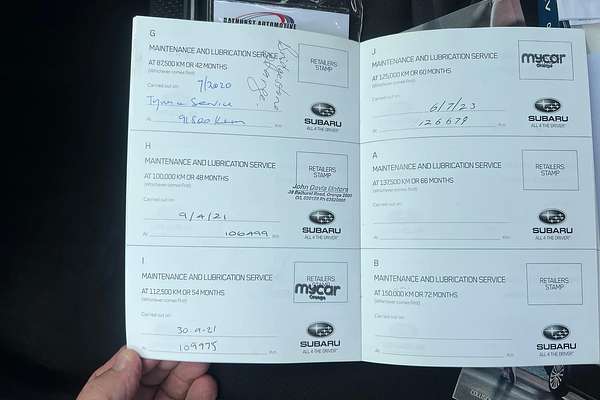 BATHURST AUTOMOTIVE
G
MAINTENANCE AND LUBRICATION SERVICE
AT 87,500 KM OR 42 MONTHS
(Whichever comes first)
Carried out on: 7/2020
Service
At 91500 Km
Bridgestone
Orange
RETAILERS
STAMP
SUBARU
ALL 4 THE DRIVER
H
MAINTENANCE AND LUBRICATION SERVICE
AT 100,000 KM OR 48 MONTHS
(Whichever comes first)
Carried out on:
9/4/21
At 106499 Km
RETAILERS
STAMP
John Davis Motors
39 Bathurst Road, Orange 2800
SUBARU
ALL 4 THE DRIVER
I
MAINTENANCE AND LUBRICATION SERVICE
AT 112,500 KM OR 54 MONTHS
(Whichever comes first)
Carried out on:
30.9.21
At 109975 Km
RETAILERS
STAMP
mycar
Orange
SUBARU
ALL 4 THE DRIVER
J
MAINTENANCE AND LUBRICATION SERVICE
AT 125,000 KM OR 60 MONTHS
(Whichever comes first)
Carried out on:
6/7/23
At 126679 Km
mycar
Orange
SUBARU
ALL 4 THE DRIVER
A
MAINTENANCE AND LUBRICATION SERVICE
AT 137,500 KM OR 66 MONTHS
(Whichever comes first)
Carried out on:
At Km
RETAILERS
STAMP
SUBARU
ALL 4 THE DRIVER
B
MAINTENANCE AND LUBRICATION SERVICE
AT 150,000 KM OR 72 MONTHS
(Whichever comes first)
Carried out on:
At Km
RETAILERS
STAMP
SUBARU
ALL 4 THE DRIVER